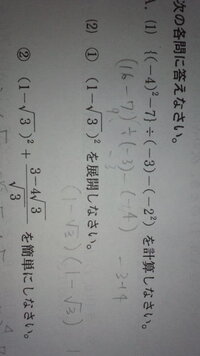 次の各問に答えなさい。
A. (1) {(-4)²-7}÷(-3)-(-2²) を計算しなさい。
(16-7)÷(-3)-(-4)
(2) ① (1-√3)² を展開しなさい。
(1-√3)(1-√3)
② (1-√3)² + (3-4√3)/√3 を簡単にしなさい。